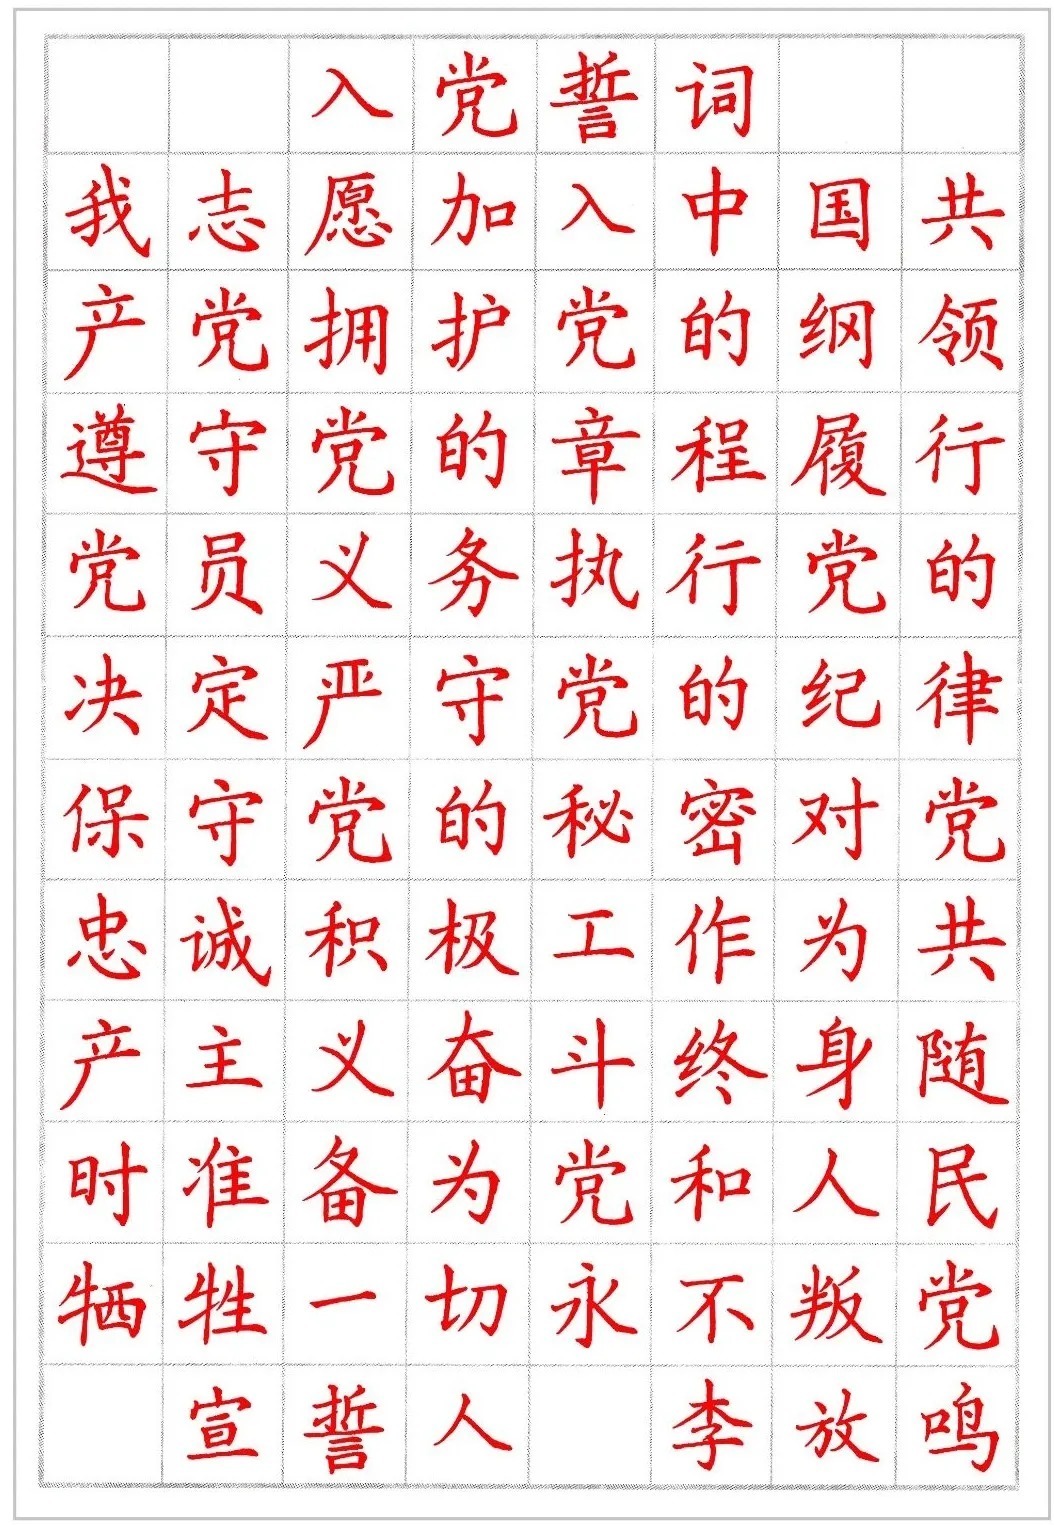 入党誓词
我志愿加入中国共
产党拥护党的纲领
遵守党的章程履行
党员义务执行党的
决定严守党的纪律
保守党的秘密对党
忠诚积极工作为共
产主义奋斗终身随
时准备为党和人民
牺牲一切永不叛党
宣誓人 李放鸣